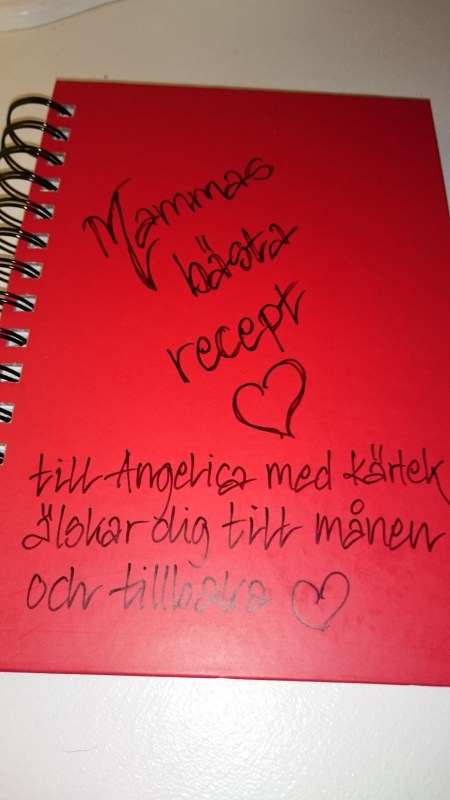 Mammas
bästa
recept
till Angelica med kärlek
älskar dig till månen
och tillbaka